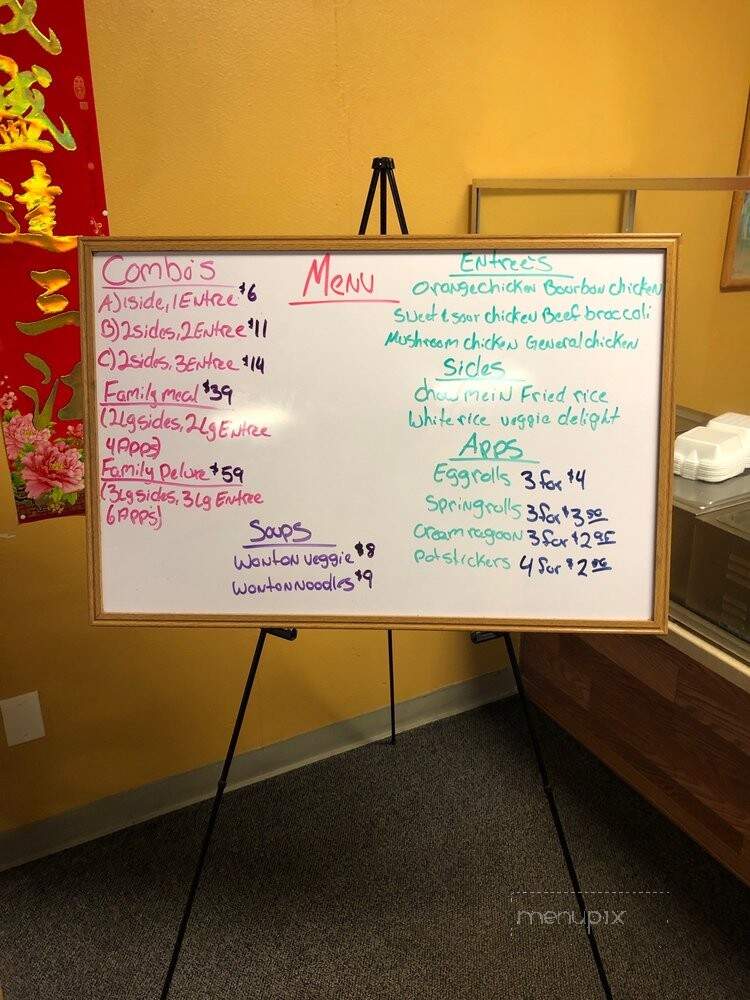 Menu
Combo's
A) 1side, 1Entree $6
B) 2sides, 2Entree $11
C) 2sides, 3Entree $14
Family meal $39
(2Lgsides, 2Lg Entree
4Apps)
Family Deluxe $59
(3Lgsides, 3Lg Entree
6App's)
Soups
Wonton veggie $8
Wonton Noodles $9
Entree's
Orange chicken Bourbon chicken
Sweet & sour chicken Beef broccoli
Mushroom chicken General chicken
Sides
Chow mein Fried rice
White rice veggie delight
Apps
Eggrolls 3 for $4
Springrolls 3 for $3 50
Cream ragoon 3 for $2 95
Potstickers 4 for $2 50
menupix